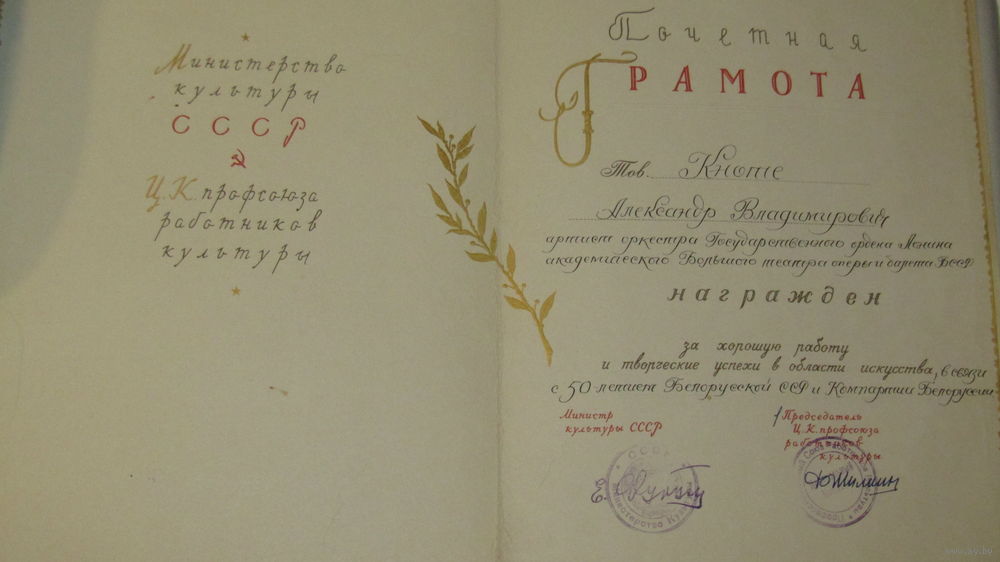 Министерство
культуры
СССР
Ц.К. профсоюза
работников
культуры
Почетная
ГРАМОТА
Тов. Кноте
Александр Владимирович
артист оркестра Государственного ордена Ленина
академического Большого театра оперы и балета БССР
награжден
за хорошую работу
и творческие успехи в области искусства, в связи
с 50 летием Белорусской ССР и Компартии Белоруссии
Министр
культуры СССР
Председатель
Ц.К. профсоюза
работников
культуры
СССР
Министерство
www.ay.by